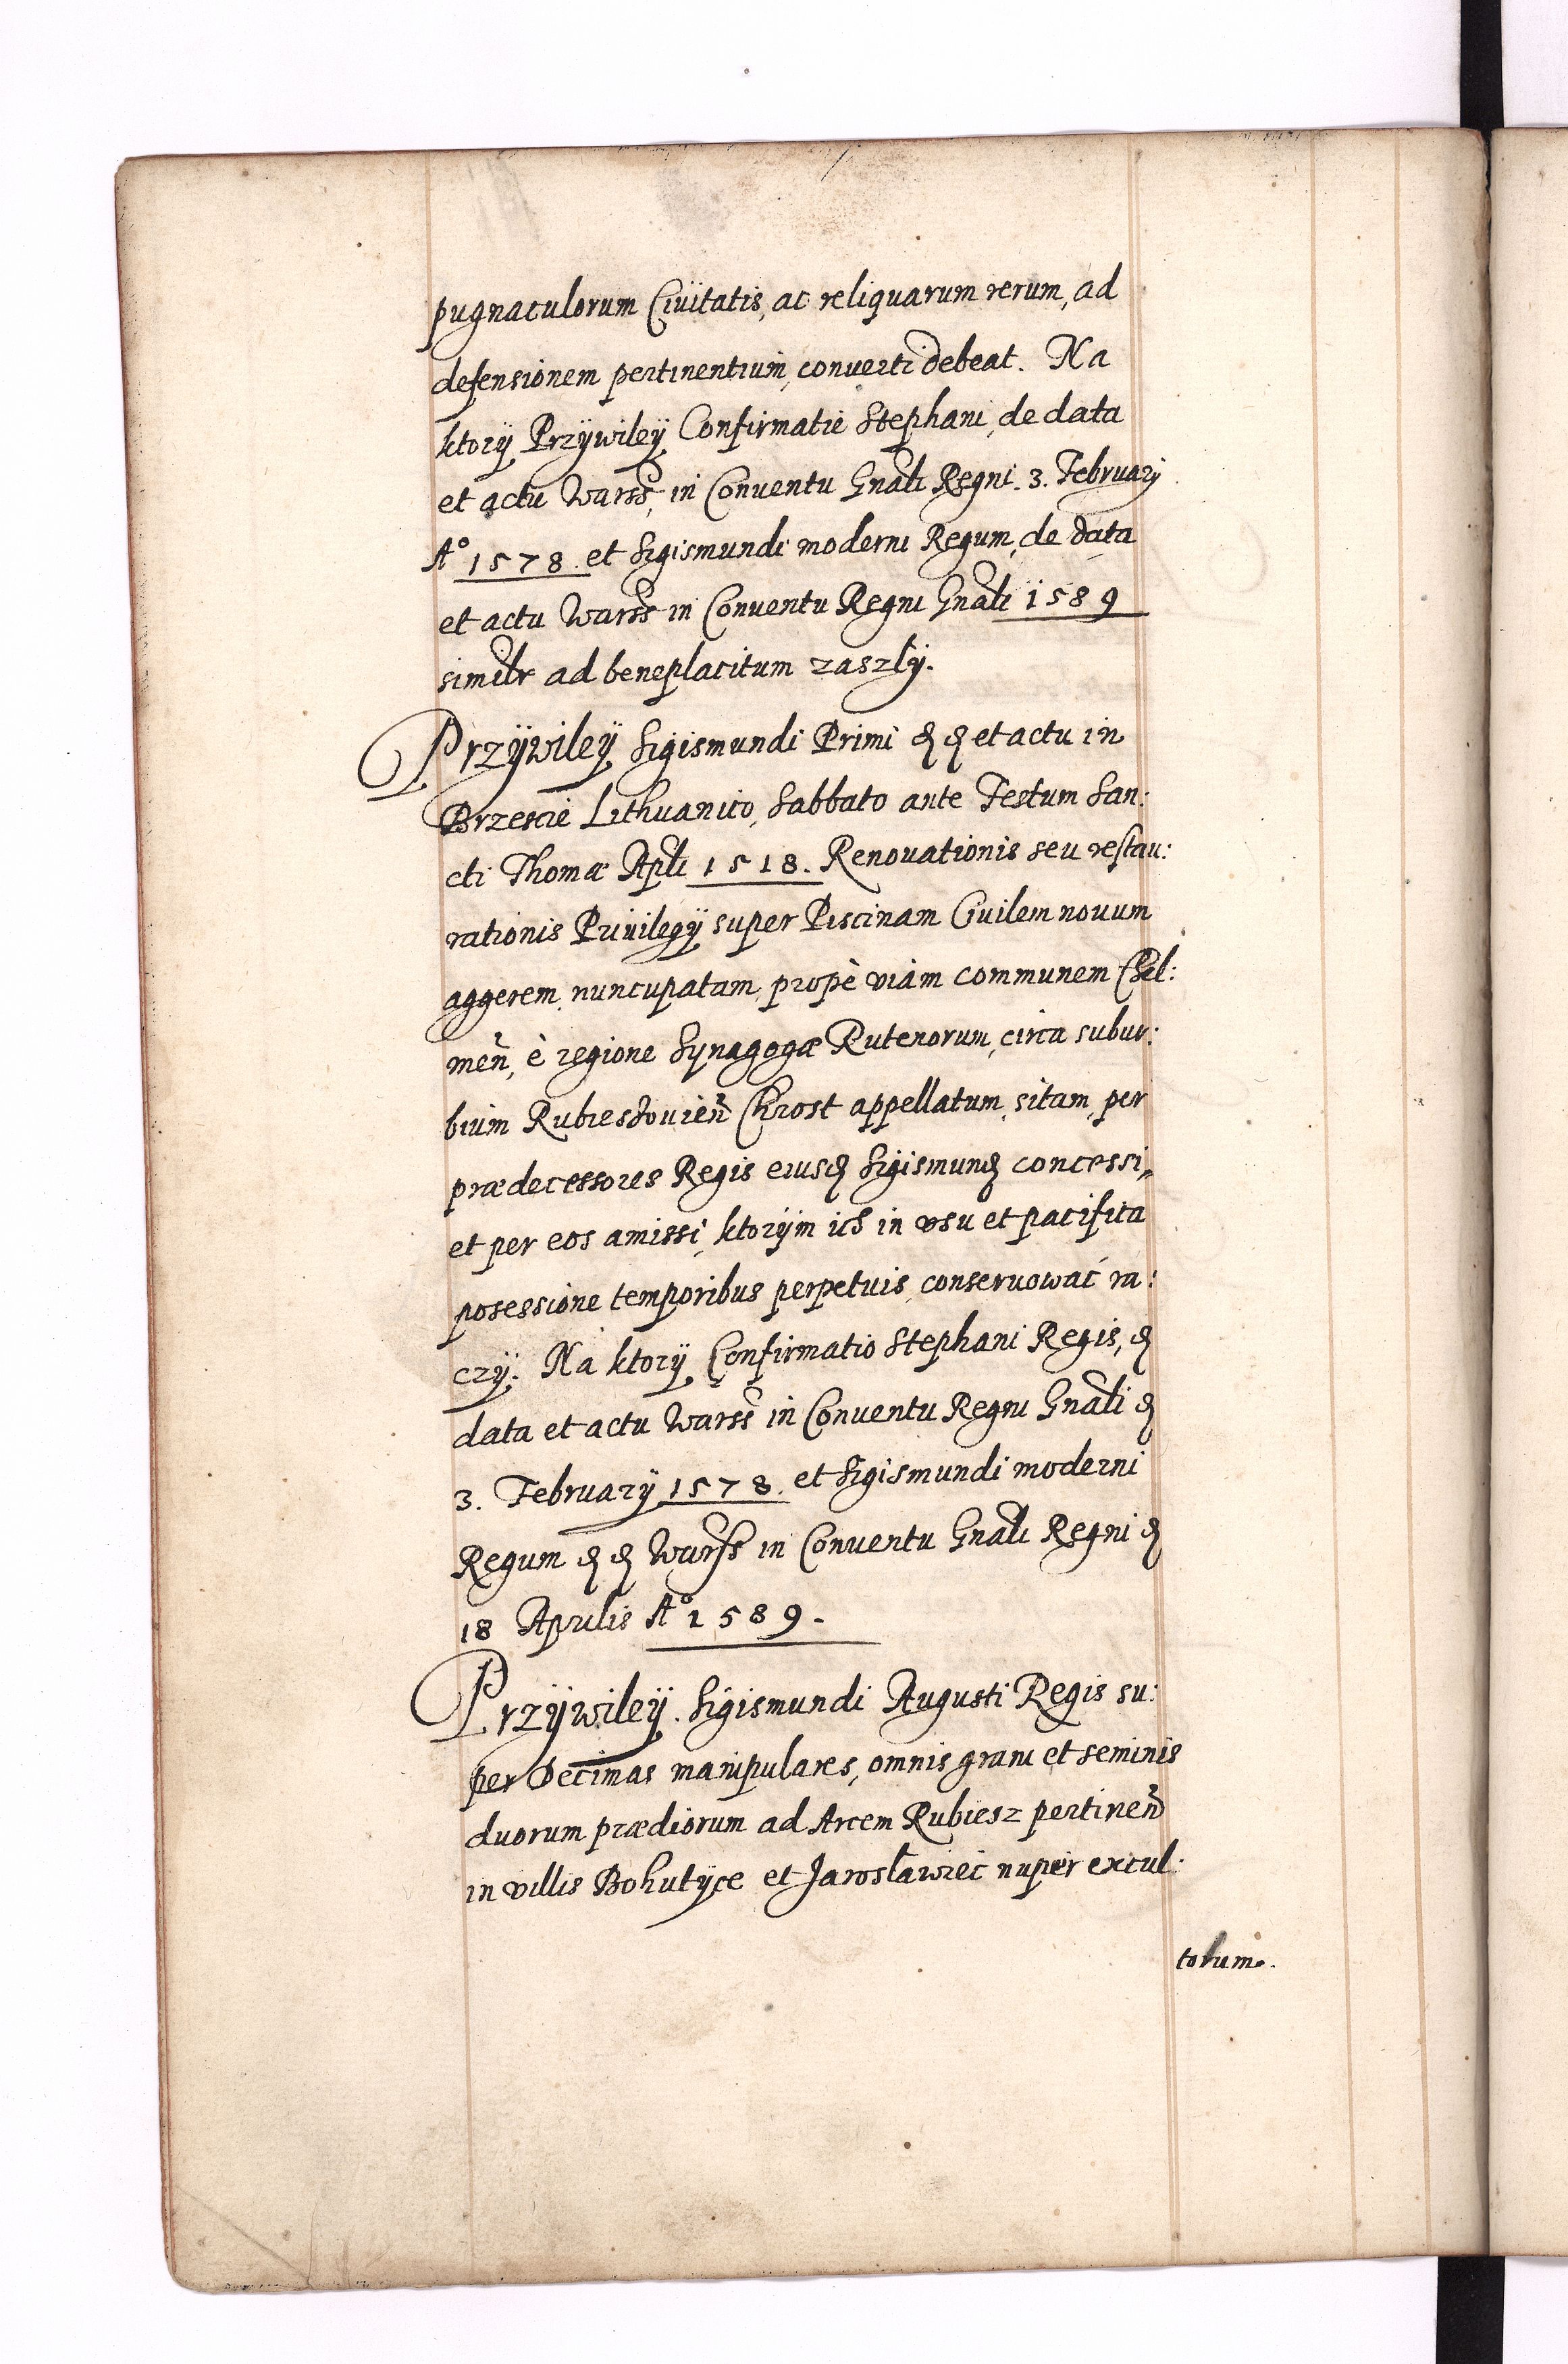 pugnaculorum Ciuitatis, ac reliquarum rerum, ad
defensionem pertinentium, conuerti debeat. Na
ktorÿ Przÿwileÿ Confirmatie Stephani, de data
et actu Warss̃, in Conuentu Gnãli Regni. 3. Februarÿ
Aº 1578. et Sigismundi moderni Regum, de data
et actu Warss̃ in Conuentu Regni Gnãli 1589
similr ad beneplacitum zaszłÿ.
Przÿwileÿ Sigismundi Primi ꝺ ꝺ et actu in
Brzescie Lithuanico, Sabbato ante Festum San:
cti Thomæ Apli 1518. Renouationis seu restau:
rationis Priuilegÿ super Piscinam Ciuilem nouum
aggerem nuncupatam, propè viam communem Chel:
meñ, è regione Synagogæ Rutenorum, circa subur:
bium Rubieszouieñ Chrost appellatum, sitam, per
prædecessores Regis eiusꝺ Sigismunꝺ concessi,
et per eos amissi, ktorÿm ich in vsu et pacifica
posessione temporibus perpetuis, conseruować ra:
czÿ. Na ktorÿ Confirmatio Stephani Regis, ꝺ
data et actu Warss̃ in Conuentu Regni Gnãli ꝺ
3. Februarÿ 1578. et Sigismundi moderni
Regum ꝺ ꝺ Warss̃ in Conuentu Gnãli Regni ꝺ
18 Aprilis Aº 1589.
Przÿwileÿ. Sigismundi Augusti Regis su:
per Decimas manipulares, omnis grani et seminis
duorum prædiorum ad Arcem Rubiesz pertineñ
in villis Bohutÿce et Jarosławiec nuper excul:
torum.